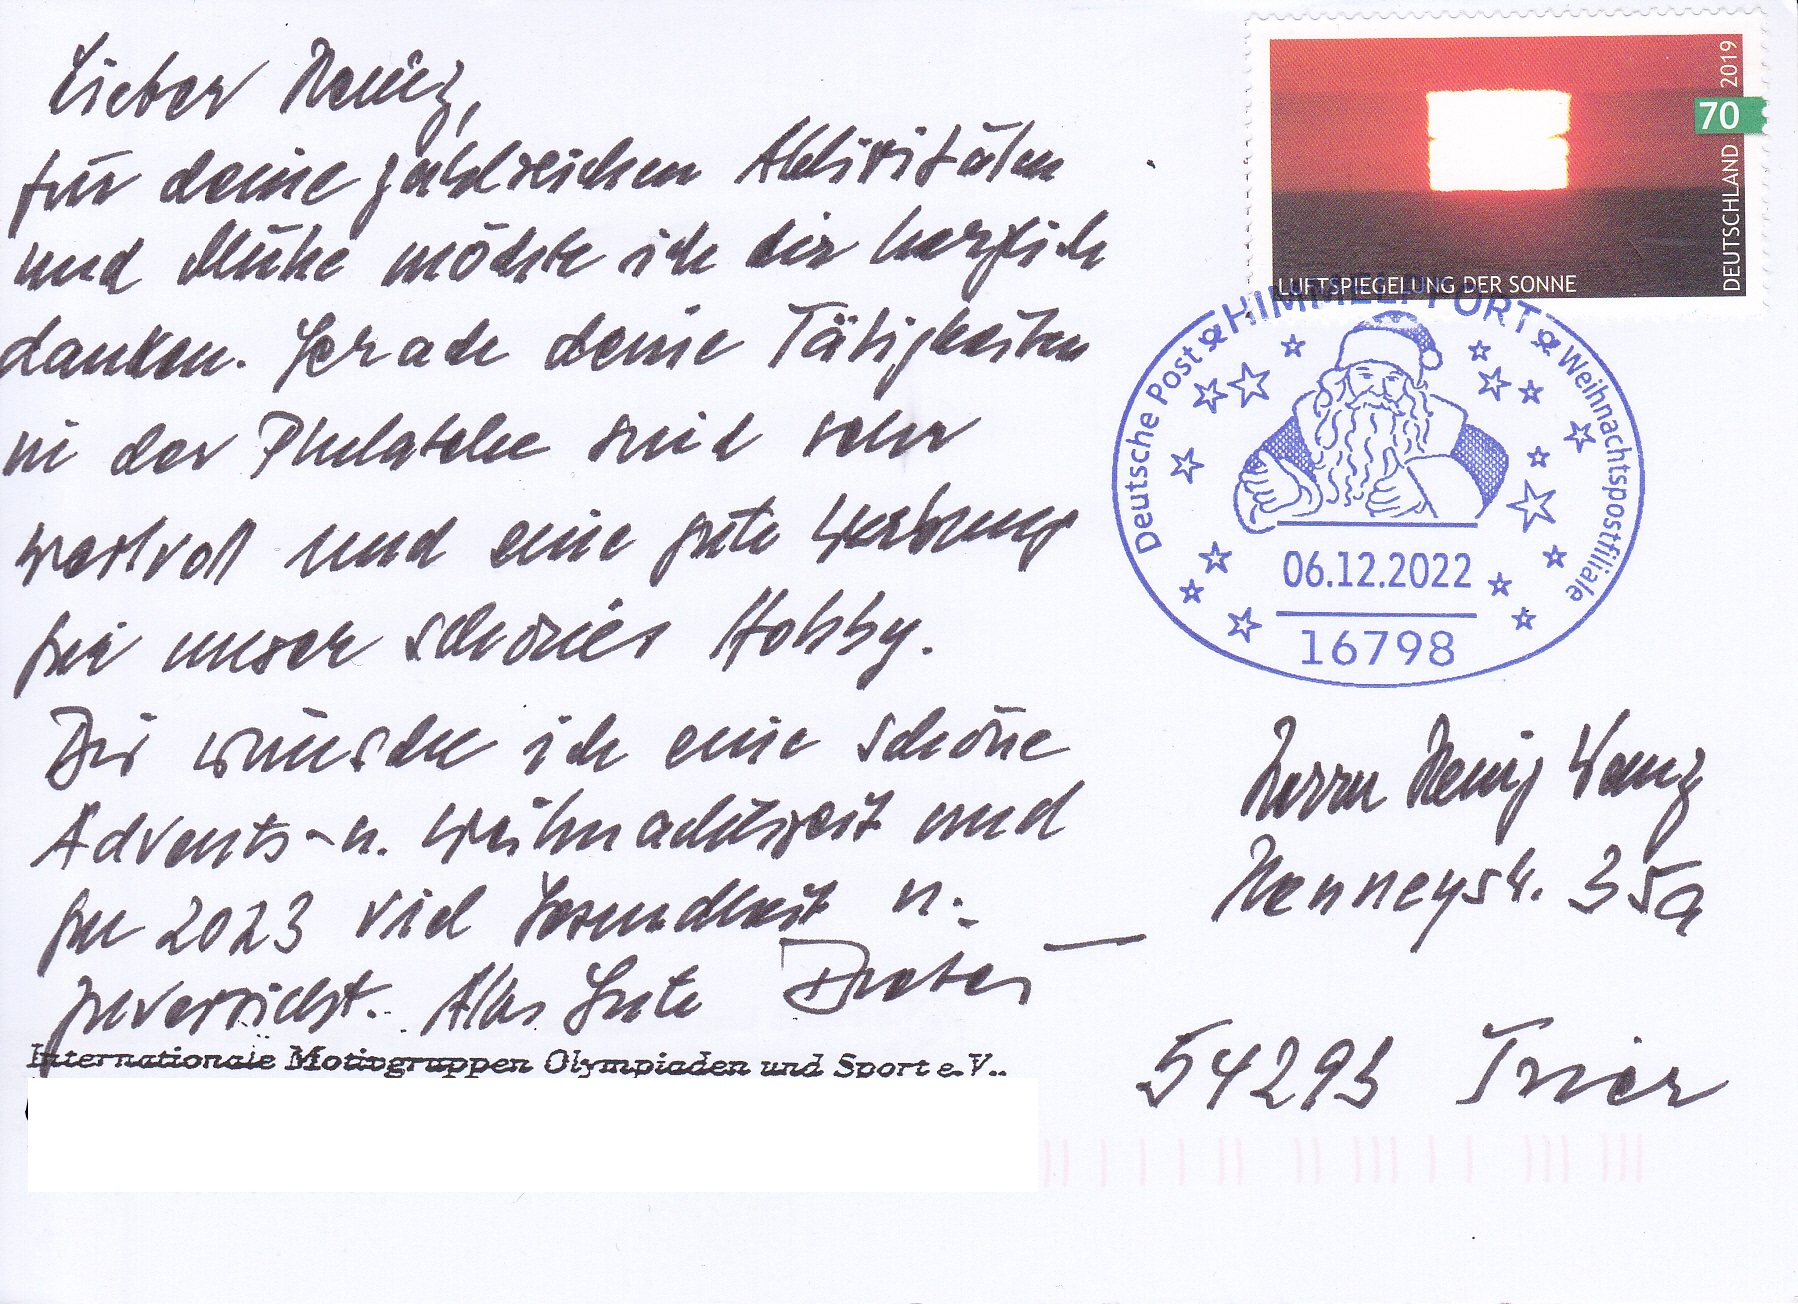 Lieber Heinz,
für deine zahlreichen Aktivitäten
und Mühe möchte ich dir herzlich
danken. Gerade deine Tätigkeiten
in der Philatelie sind sehr
wertvoll und eine gute Werbung
für unser schönes Hobby.
Dir wünsche ich eine schöne
Advents- u. Weihnachtszeit und
für 2023 viel Gesundheit u.
Zuversicht. Alles Gute Dieter
Internationale Motivgruppen Olympiaden und Sport e.V..
DEUTSCHLAND 2019
70
LUFTSPIEGELUNG DER SONNE
Deutsche Post HIMMELPFORT Weihnachtspostfiliale
06.12.2022
16798
Herrn
35a
54293 Trier